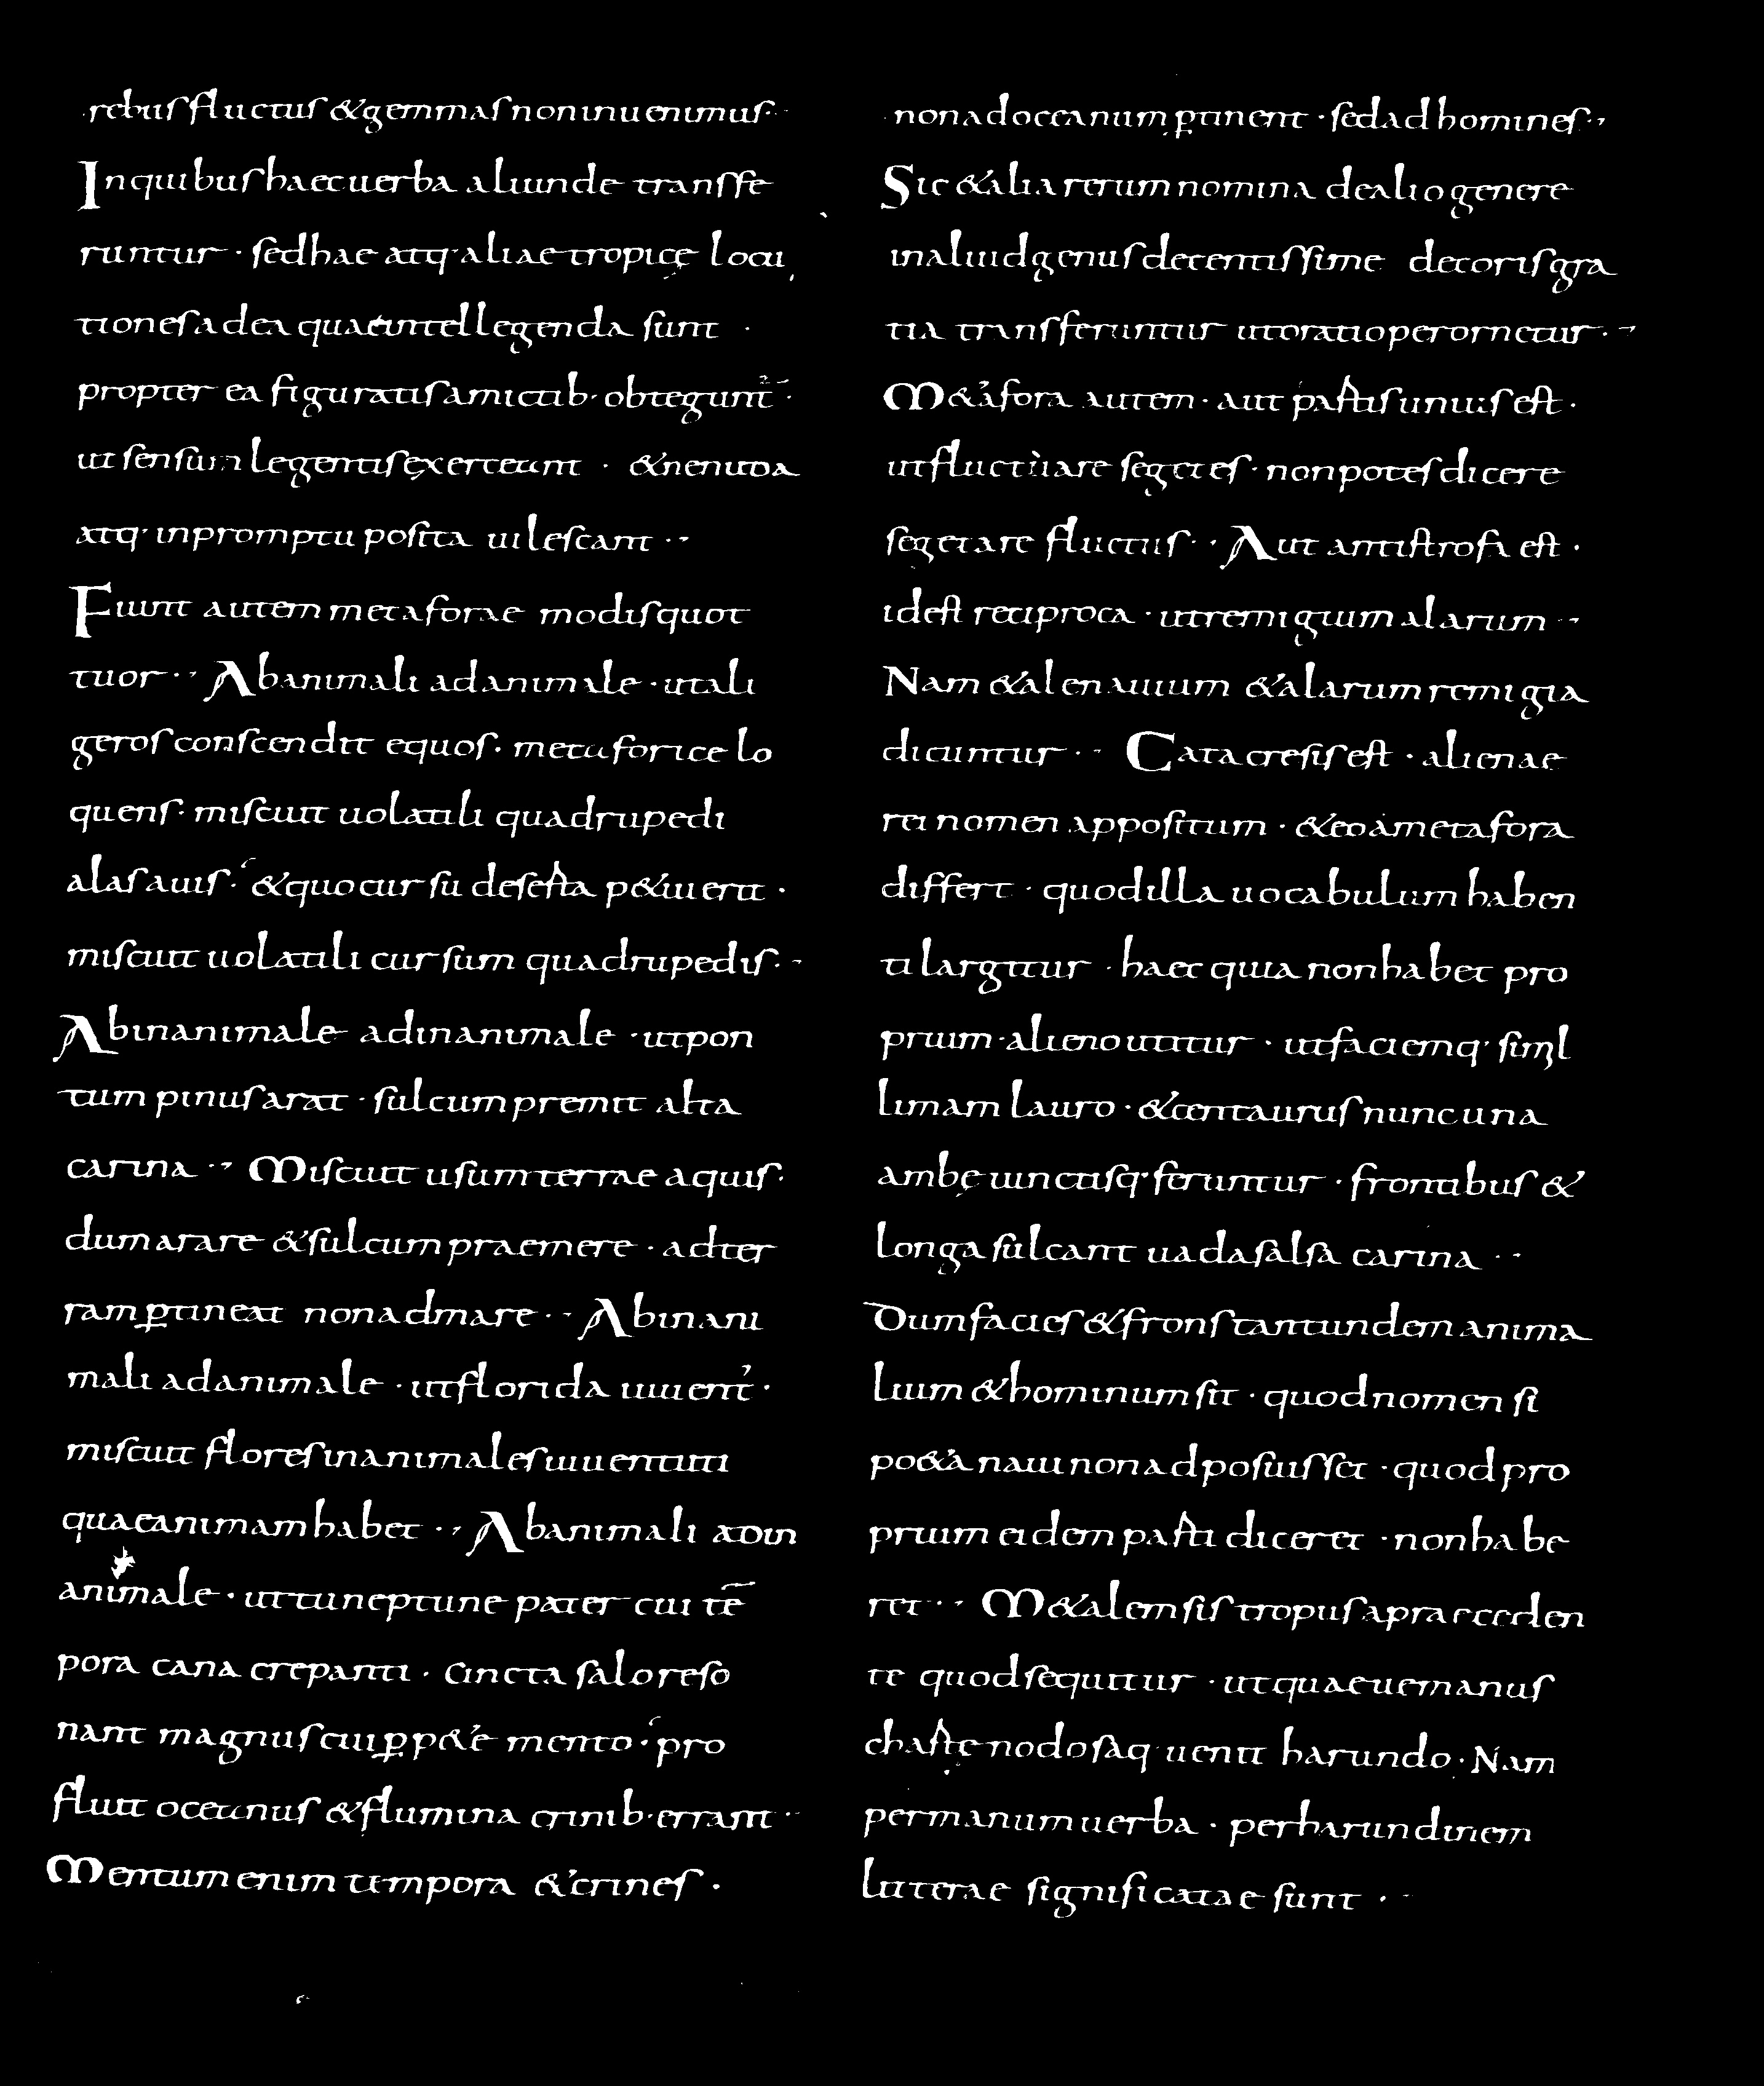 rebus fluctus & gemmas non inuenimus·
In quibus haec uerba aliunde transfe
runtur · sed hae atq· aliae tropicę locu
tiones ad ea quae intellegenda sunt ·
propter ea figuratis amictib· obtegunt̄ ·
ut sensum legentis exerceant · & ne nuda
atq· in promptu posita uilescant ··
Fiunt autem metaforae modis quot
tuor ·· Ab animali ad animale · ut ali
geros conscendit equos· metaforice lo
quens· miscuit uolatili quadrupedi
alas auis·& quo cursu deserta p&iuerit ·
miscuit uolatili cursum quadrupedis··
Ab inanimale ad inanimale · ut pon
tum pinus arat · sulcum premit alta
carina ·· Miscuit usum terrae aquis·
dum arare & sulcum praemere · ad ter
ram ꝑtineat non ad mare ·· Ab inani
mali ad animale · ut florida iuuent̄ ·
miscuit flores inanimales iuuentuti
quae animam habet ·· Ab animali ad in
animale · ut tu neptune pater cui tē
pora cana crepanti · cincta salo reso
nant magnus cui ꝑp&e mento · pro
fluit oceanus & flumina crinib· errant ··
Mentum enim tempora & crines ·
non ad occeanum ꝑtinent · sed ad homines··
Sic & alia rerum nomina de alio genere
in aliud genus decentissime decoris gra
tia transferuntur ut oratio perornetur··
M&afora autem · aut partis unius est ·
ut fluctuare segetes · non potes dicere
segetare fluctus ·· Aut antistrofa est ·
id est reciproca · ut remigium alarum ··
Nam & alen auium & alarum remigia
dicuntur ·· Catacresis est · alienae
rei nomen appositum · & eo a metafora
differt · quod illa uocabulum haben
ti largitur · haec quia non habet pro
prium · alieno utitur · ut faciemq· simul
limam lauro · & centaurus nunc una
ambę uinctisq· feruntur · frontibus &
longa sulcant uada salsa carina ··
Dum facies & frons tantundem anima
lium & hominum sit · quod nomen si
po&a naui non adposuisset · quod pro
prium eidem parti diceret · non habe
ret ·· M&alemsis tropus a praeceden
te quod sequitur · ut quae ue manus
chartę nodosaq· uenit harundo · Nam
per manum uerba · per harundinem
litterae significatae sunt ··